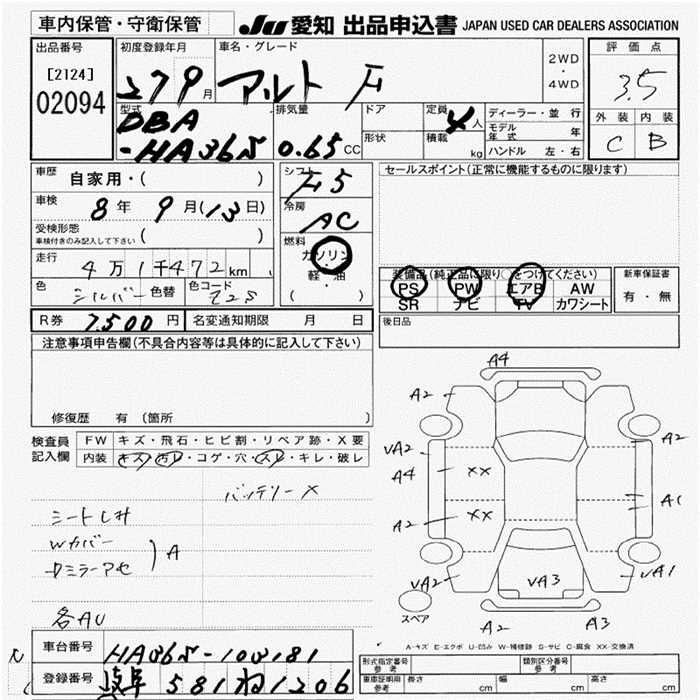 車内保管・守衛保管
JU 愛知 出品申込書 JAPAN USED CAR DEALERS ASSOCIATION
出品番号
[2124]
02094
初度登録年月
27 9 月
車名・グレード
アルト F
2WD
・
4WD
評価点
3.5
外装 内装
C B
型式
DBA
-HA36S
排気量
0.65 CC
ドア
形状
定員
4 人
積載
kg
ディーラー・並行
モデル年式 年
ハンドル 左・右
車歴
自家用・( )
車検
8 年 9 月(13日)
受検形態
車検付きのみ記入して下さい ( )
走行
4万1千472km
色
シルバー
色替
色コード
Z2S
シフト
F5
冷房
AC
燃料
ガソリン
・
軽・油
( )
セールスポイント(正常に機能するものに限ります)
装備品(純正品に限り○をつけてください)
PS PW エアB AW
SR ナビ TV カワシート
新車保証書
有・無
R券 7,500 円
名変通知期限 月 日
後日品
注意事項申告欄(不具合内容等は具体的に記入して下さい)
修復歴 有 (箇所
検査員
記入欄
FW キズ・飛石・ヒビ割・リペア跡・X要
内装 キズ・汚レ・コゲ・穴・スレ・キレ・破レ
バッテリーX
シートしみ
Wカバー
ドミラーアセ
A
各AU
A4
A2
A2
VA2
A4
XX
A1
A2
XX
VA2
VA3
VA1
スペア
A2
A3
A-キズ E-エクボ U-凹み W-補修跡 S-サビ C-腐食 XX-交換済
車台番号
HA36S-103181
登録番号
581 ね 1206
形式指定番号
参考
類別区分番号
参考
車庫証明用
参考
長さ cm 幅 cm 高さ cm